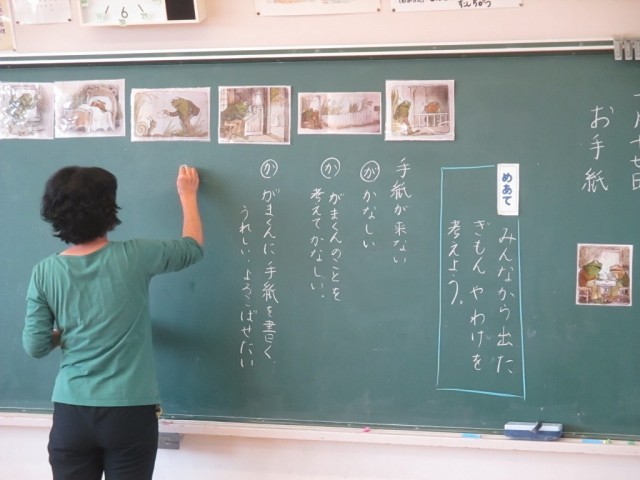 お手紙
めあて
みんなから出た
ぎもんやわけを
考えよう。
手紙が来ない
が かなしい
か がまくんのことを
考えてかなしい。
か がまくんに手紙を書く
うれしい、よろこばせたい